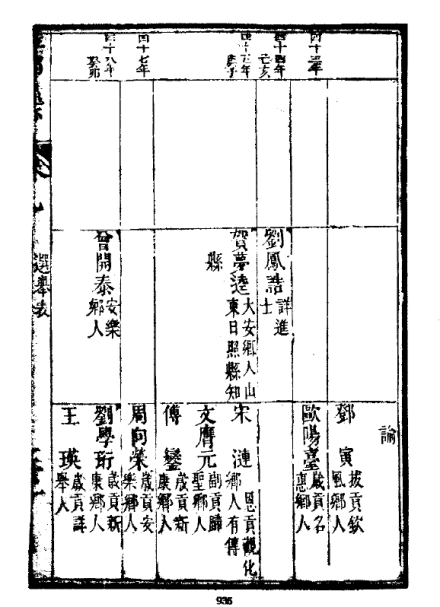 四十四年
己亥
四十五年
庚子
四十七年
四十八年
癸卯
劉鳳誥 詳進
士
賀夢逵 大安鄉人山
東日照縣知
縣
曾開泰 安樂
鄉人
諭
鄧寅 拔貢欽
風鄉人
歐陽臺 歲貢名
惠鄉人
宋漣 恩貢觀化
鄉人有傳
文膺元 副貢歸
聖鄉人
傅鑾 歲貢新
康鄉人
周向榮 歲貢安
樂鄉人
劉學珩 歲貢新
康鄉人
王瑛 歲貢詳
舉人
選舉表
935